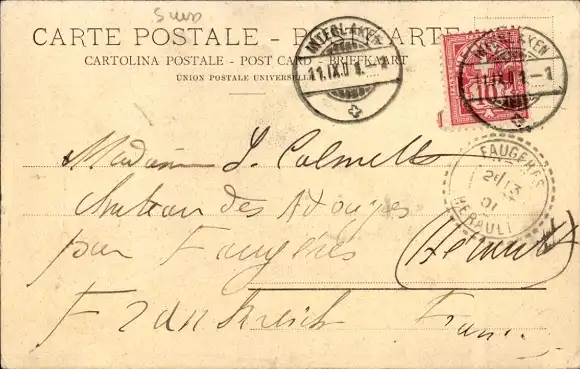 Suiss
CARTE POSTALE - POSTKARTE
CARTOLINA POSTALE - POST CARD - BRIEFKAART
UNION POSTALE UNIVERSELLE
INTERLAKEN
11.IX.01.
INTERLAKEN
11.IX.01.-1
10
FAUGÈRES
13
01
HERAULT
Madame S. Calmette
Chateau des Adouzes
par Faugères (Hérault)
Frankreich France